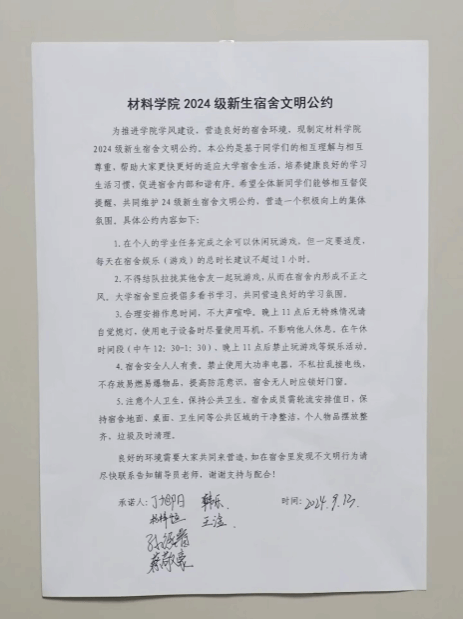 材料学院 2024 级新生宿舍文明公约
为推进学院学风建设,营造良好的宿舍环境,现制定材料学院
2024 级新生宿舍文明公约。本公约是基于同学们的相互理解与相互
尊重,帮助大家更快更好的适应大学宿舍生活、培养健康良好的学习
生活习惯,促进宿舍内部和谐有序。希望全体新同学们能够相互督促
提醒,共同维护 24 级新生宿舍文明公约,营造一个积极向上的集体
氛围。具体公约内容如下:
1.在个人的学业任务完成之余可以休闲玩游戏,但一定要适度,
每天在宿舍娱乐(游戏)的总时长建议不超过 1 小时。
2.不得结队拉拢其他舍友一起玩游戏,从而在宿舍内形成不正之
风。大学宿舍里应提倡多看书学习,共同营造良好的学习氛围。
3.合理安排作息时间,不大声喧哗。晚上 11 点后无特殊情况请
自觉熄灯,使用电子设备时尽量使用耳机,不影响他人休息。在午休
时间段(中午 12:30-1:30)、晚上 11 点后禁止玩游戏等娱乐活动。
4.宿舍安全人人有责。禁止使用大功率电器,不私拉乱接电线,
不存放易燃易爆物品,提高防范意识,宿舍无人时应锁好门窗。
5.注意个人卫生,保持公共卫生。宿舍成员需轮流安排值日,保
持宿舍地面、桌面、卫生间等公共区域的干净整洁,个人物品摆放整
齐,垃圾及时清理。
良好的环境需要大家共同来营造,如在宿舍里发现不文明行为请
尽快联系告知辅导员老师,谢谢支持与配合!
承诺人:丁旭阳 韩乐 时间:2024.9.13.